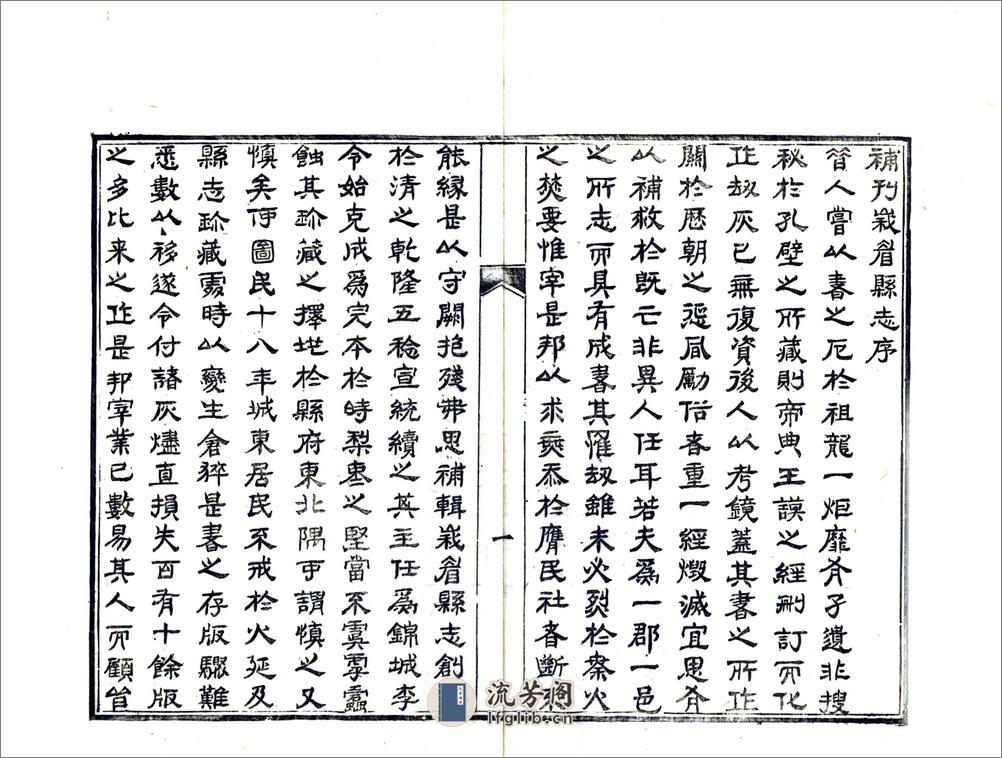 補刊峩眉縣志序
昔人嘗以書之厄於祖龍一炬靡有孑遺非搜
秘於孔壁之所藏則帝典王謨之經刪訂而化
作劫灰已無復資後人以考鏡蓋其書之所作
關於歷朝之懲風勵俗者重一經燬滅宜思有
以補救於旣亡非異人任耳若夫爲一郡一邑
之所志而具有成書其罹劫雖未必烈於秦火
之焚要惟宰是邦以求無忝於膺民社者斷不
能緣是以守闕抱殘弗思補輯峩眉縣志創
於清之乾隆五稔宣統續之其主任爲錦城李
令始克成爲完本於時梨棗之堅當不虞羣蠹
蝕其珍藏之擇地於縣府東北隅可謂愼之又
愼矣何圖民十八年城東居民不戒於火延及
縣志珍藏處時以變生倉猝是書之存版驟難
悉數以移遂令付諸灰燼直損失百有十餘版
之多比来之作是邦宰業已數易其人而顧皆
一
流芳阁
lfglib.cn